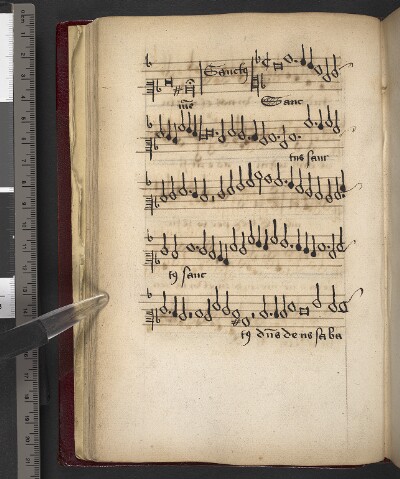 Sanctus
me Sanc
tus sanc
tus sanc
tus dns deus saba